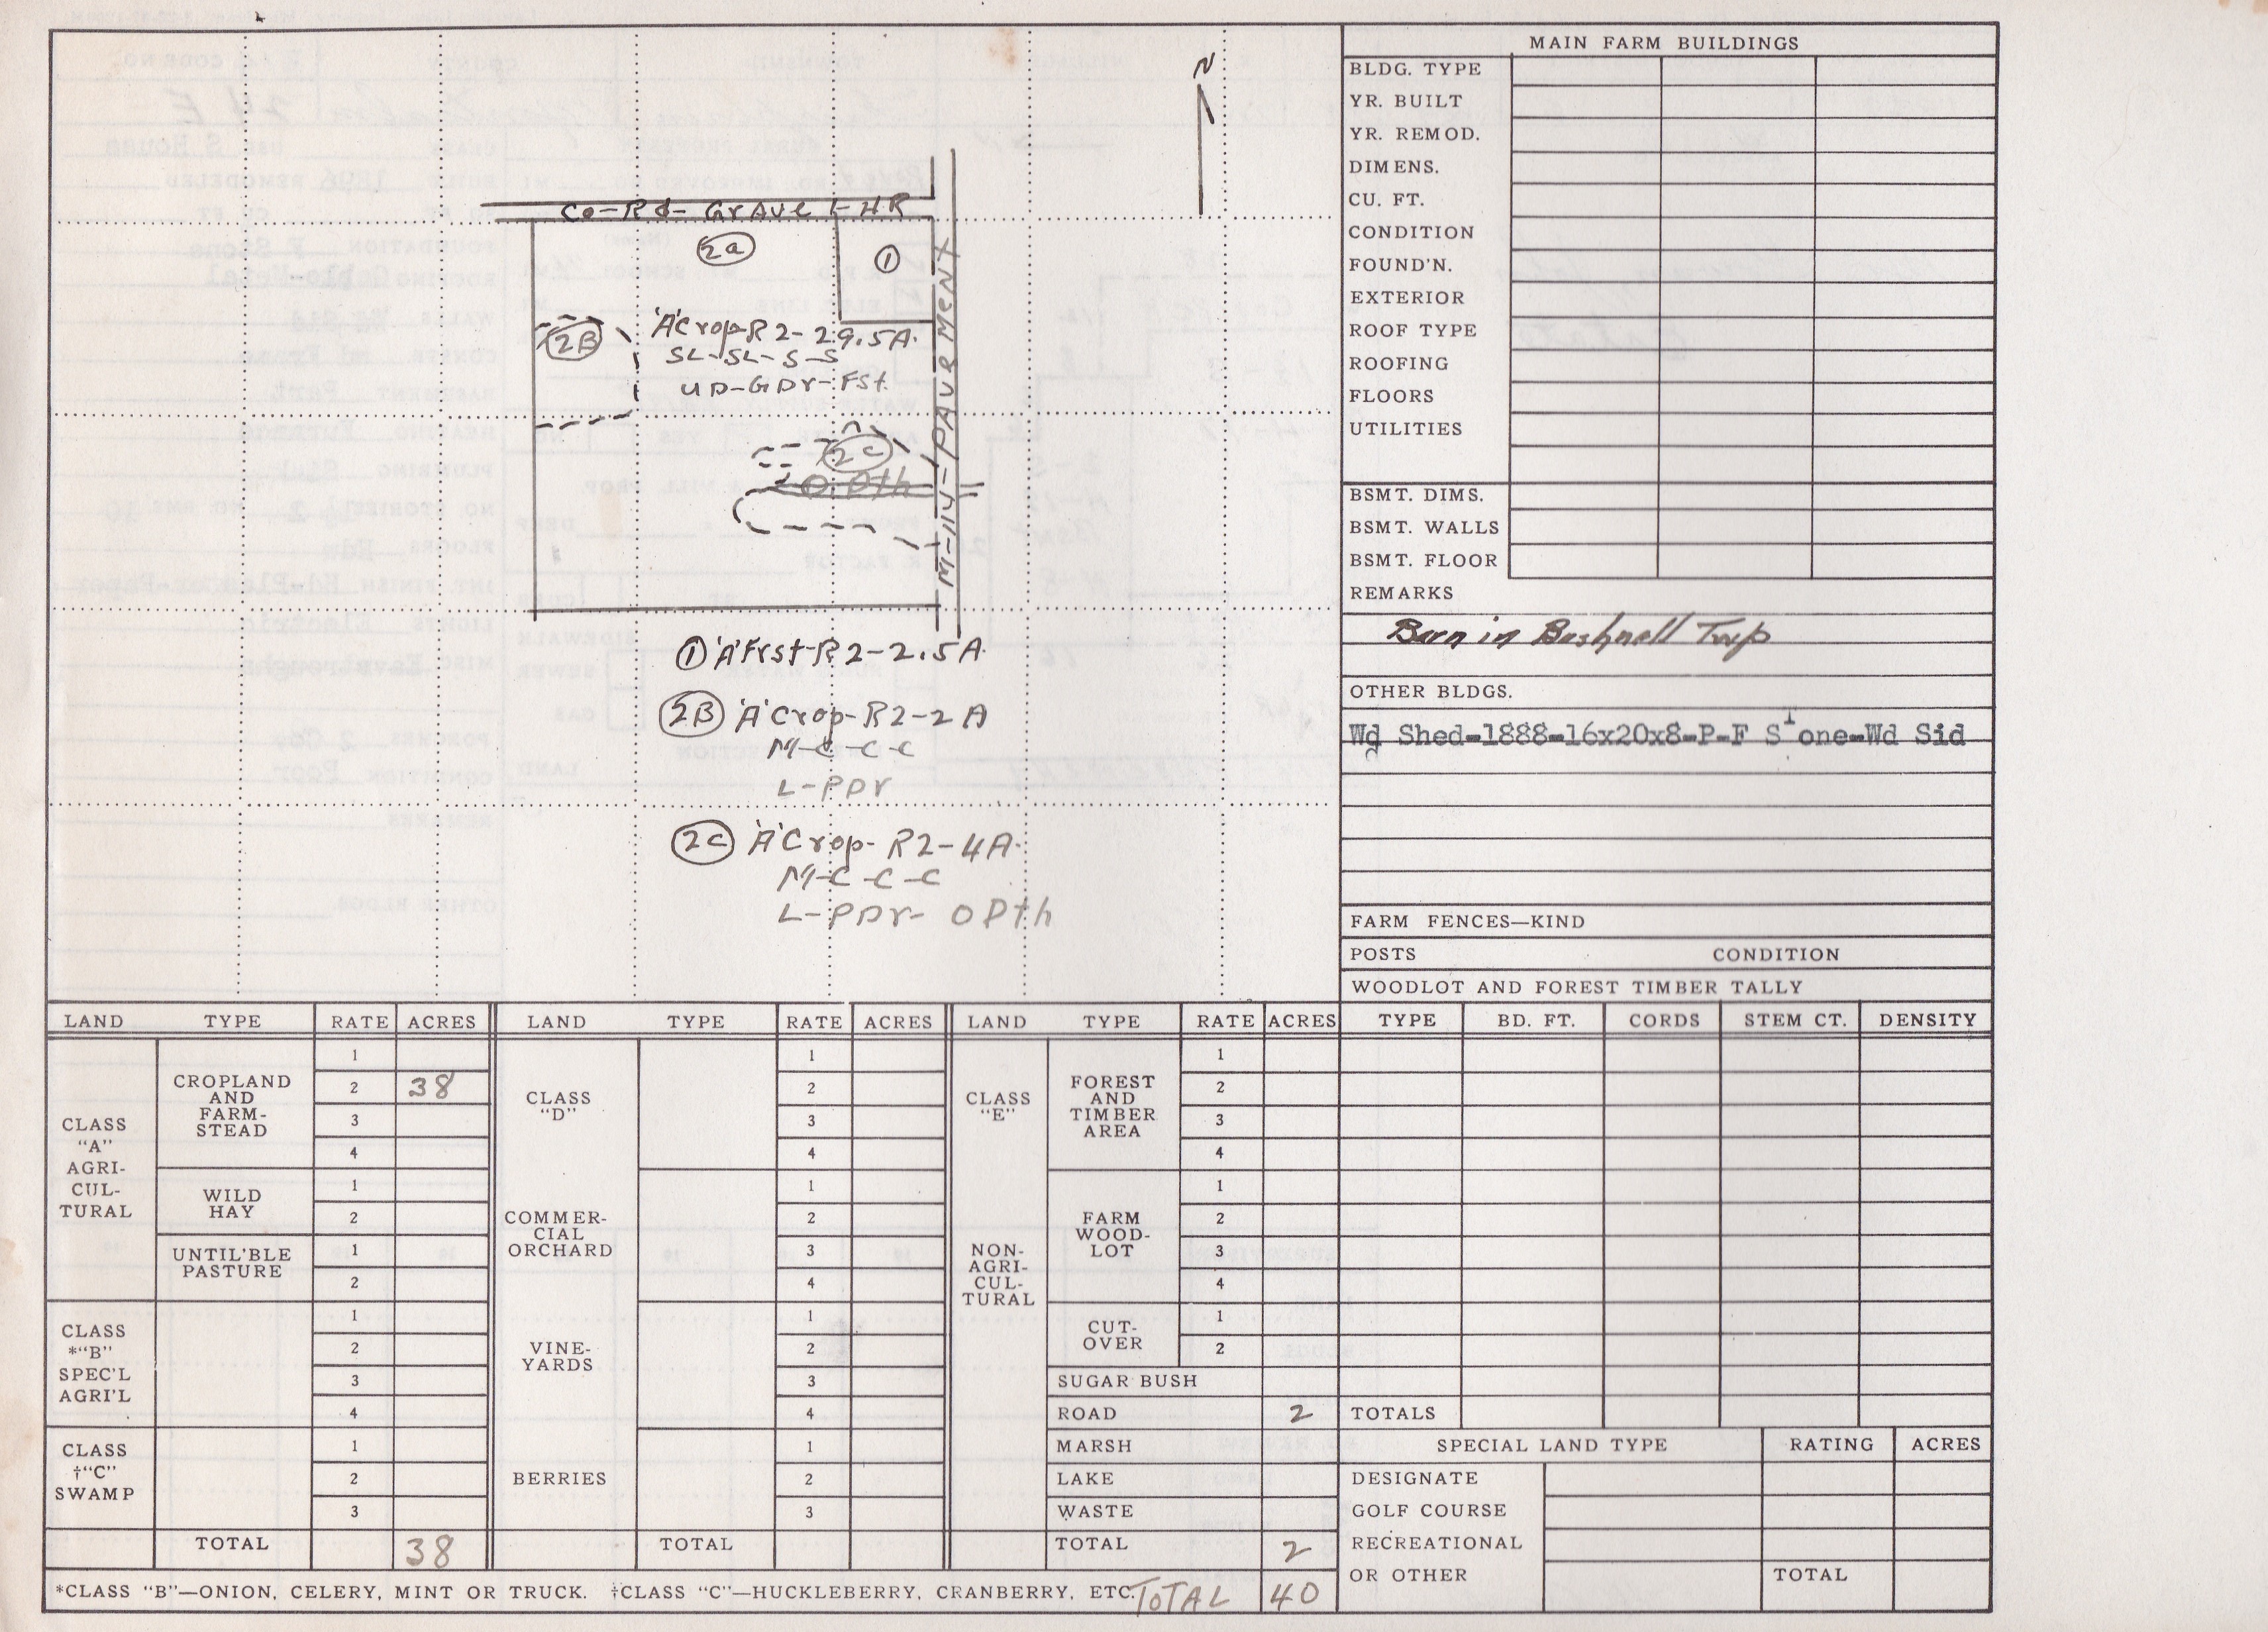 N
Co-Rd-Gravel-HR
2a
1
2B
'A'Crop-R2-29.5A.
SL-SL-S-S
UD-GDr-Fst.
2c
O Pth
M-114-PAVEMENT
1 'A'Frst-R2-2.5A
2B 'A'Crop-R2-2A
M-C-C-C
L-PDr
2C 'A'Crop-R2-4A.
M-C-C-C
L-PDr-OPth
MAIN FARM BUILDINGS
BLDG. TYPE
YR. BUILT
YR. REMOD.
DIMENS.
CU. FT.
CONDITION
FOUND'N.
EXTERIOR
ROOF TYPE
ROOFING
FLOORS
UTILITIES
BSMT. DIMS.
BSMT. WALLS
BSMT. FLOOR
REMARKS
Barn in Bushnell Twp
OTHER BLDGS.
Wd Shed-1888-16x20x8-P-F Stone-Wd Sid
FARM FENCES—KIND
POSTS CONDITION
WOODLOT AND FOREST TIMBER TALLY
LAND TYPE RATE ACRES LAND TYPE RATE ACRES LAND TYPE RATE ACRES TYPE BD. FT. CORDS STEM CT. DENSITY
CLASS
"A"
AGRI-
CUL-
TURAL
CROPLAND
AND
FARM-
STEAD
1
2 38
3
4
WILD
HAY
1
2
UNTIL'BLE
PASTURE
1
2
CLASS
*"B"
SPEC'L
AGRI'L
1
2
3
4
CLASS
†"C"
SWAMP
1
2
3
TOTAL 38
CLASS
"D"
COMMER-
CIAL
ORCHARD
1
2
3
4
1
2
3
4
VINE-
YARDS
1
2
3
4
BERRIES
1
2
3
TOTAL
CLASS
"E"
NON-
AGRI-
CUL-
TURAL
FOREST
AND
TIMBER
AREA
1
2
3
4
FARM
WOOD-
LOT
1
2
3
4
CUT-
OVER
1
2
SUGAR BUSH
ROAD 2
MARSH
LAKE
WASTE
TOTAL 2
TOTALS
SPECIAL LAND TYPE RATING ACRES
DESIGNATE
GOLF COURSE
RECREATIONAL
OR OTHER TOTAL
*CLASS "B"—ONION, CELERY, MINT OR TRUCK. †CLASS "C"—HUCKLEBERRY, CRANBERRY, ETC. TOTAL 40